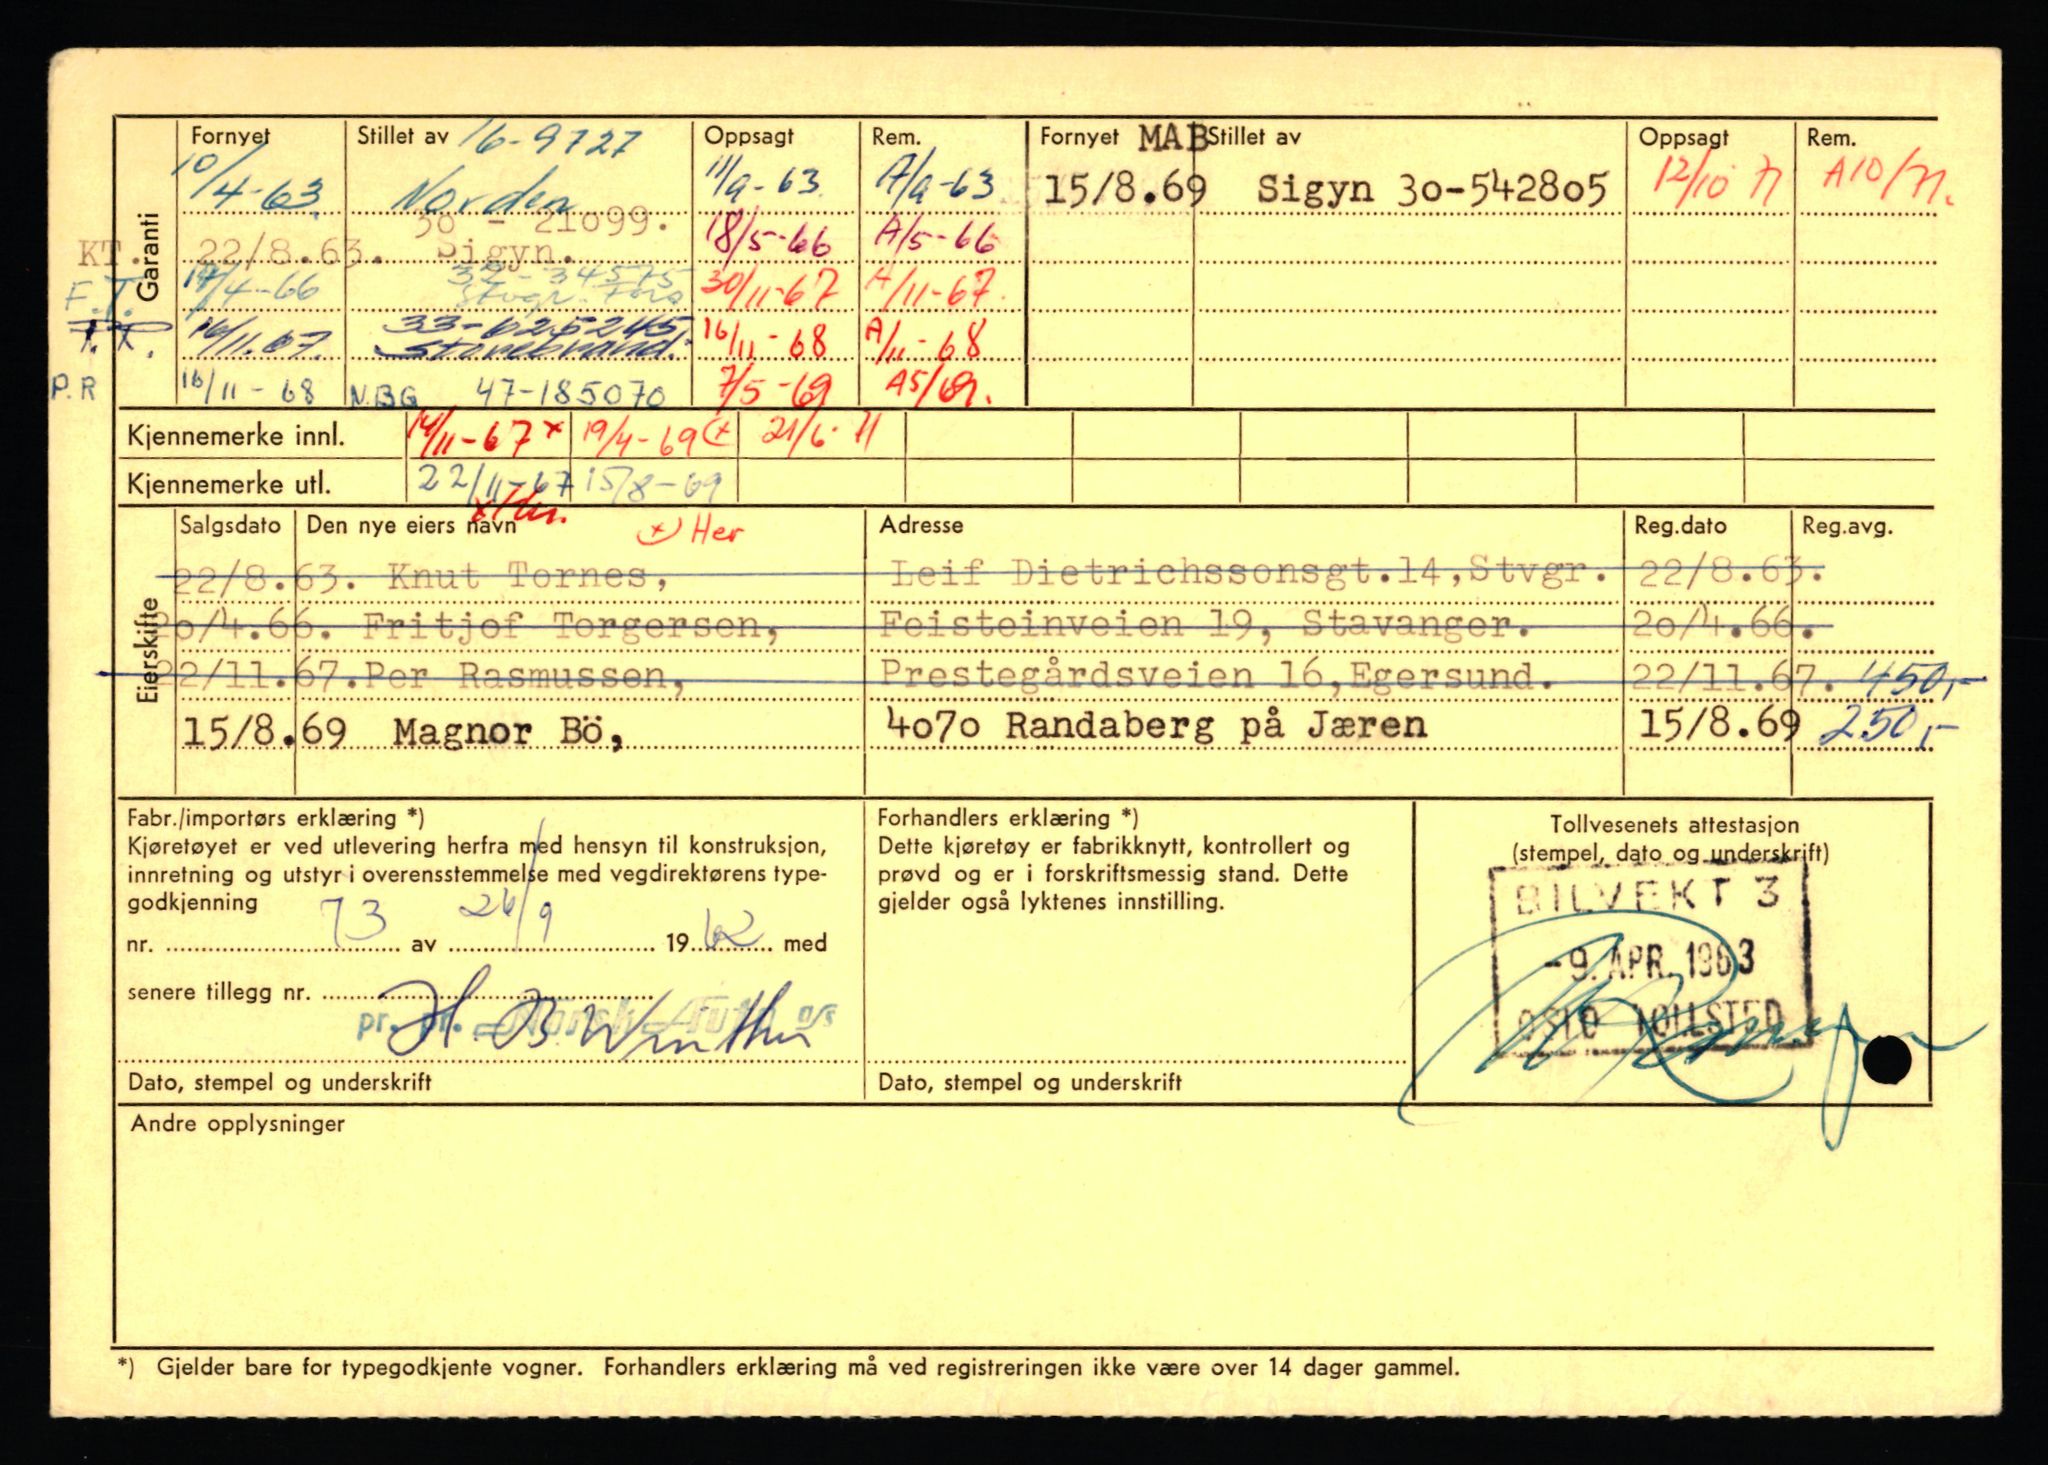 Garanti
Fornyet Stillet av 16-9727 Oppsagt Rem. Fornyet MAB Stillet av Oppsagt Rem.
10/4-63. Norden 11/9-63 A/9-63 15/8.69 Sigyn 30-542805 12/10 71 A10/71.
30 - 21099.
KT. 22/8.63. Sigyn. 18/5-66 A/5-66
F.T. 14/4-66 32-34575 30/11-67 A/11-67.
Stvgr.
16/11.67. 33-625245 16/11-68 A/11-68
Storebrand.
P.R 16/11-68 N.BG 47-185070 7/5-69 A5/69.
Kjennemerke innl. 14/11-67 x 19/4-69 (x) 21/6-71
Kjennemerke utl. 22/11-67 15/8-69
Eierskifte
Salgsdato Den nye eiers navn (x) Her Adresse Reg.dato Reg.avg.
22/8.63. Knut Tornes, Leif Dietrichssonsgt.14,Stvgr. 22/8.63.
20/4.66. Fritjof Torgersen, Feisteinveien 19, Stavanger. 20/4.66.
22/11.67. Per Rasmussen, Prestegårdsveien 16,Egersund. 22/11.67. 450,-
15/8.69 Magnor Bö, 4070 Randaberg på Jæren 15/8.69 250,-
Fabr./importørs erklæring *)
Kjøretøyet er ved utlevering herfra med hensyn til konstruksjon,
innretning og utstyr i overensstemmelse med vegdirektørens type-
godkjenning
nr. 73 av 26/9 1962 med
senere tillegg nr.
pr. pr. Norsk Auto a/s
H. B. Winther
Dato, stempel og underskrift
Forhandlers erklæring *)
Dette kjøretøy er fabrikknytt, kontrollert og
prøvd og er i forskriftsmessig stand. Dette
gjelder også lyktenes innstilling.
Dato, stempel og underskrift
Tollvesenets attestasjon
(stempel, dato og underskrift)
BILVEKT 3
-9. APR. 1963
OSLO TOLLSTED
Andre opplysninger
*) Gjelder bare for typegodkjente vogner. Forhandlers erklæring må ved registreringen ikke være over 14 dager gammel.